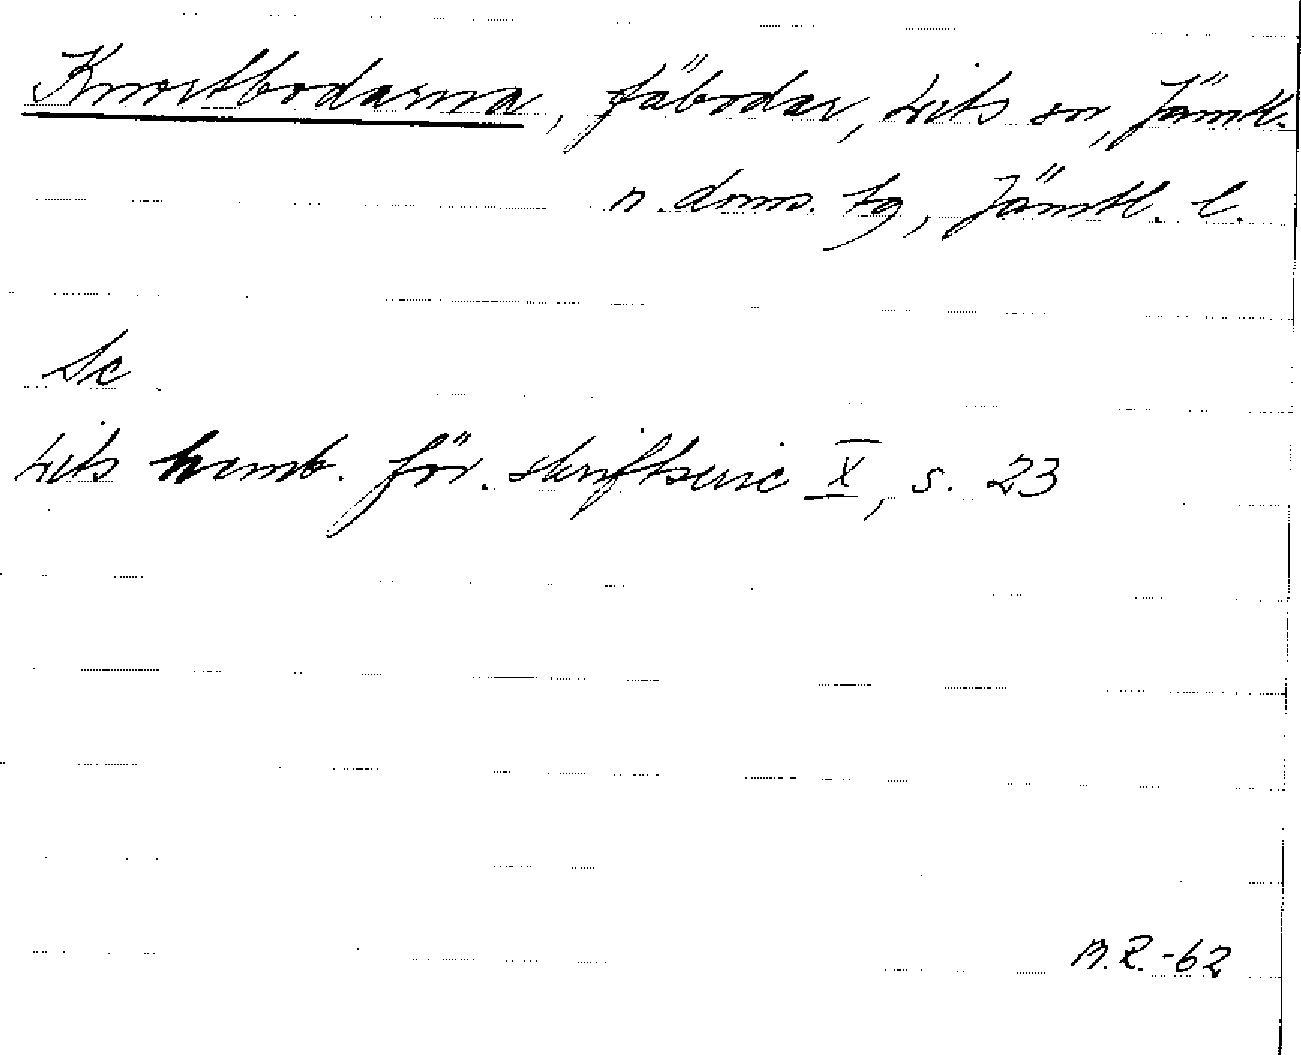 Knortbodarna, fäbodar, Lits sn, Jämtl.
n. doms. tg, Jämtl. l.
Se
Lits hemb. för. skriftserie X, s. 23
A.R.-62